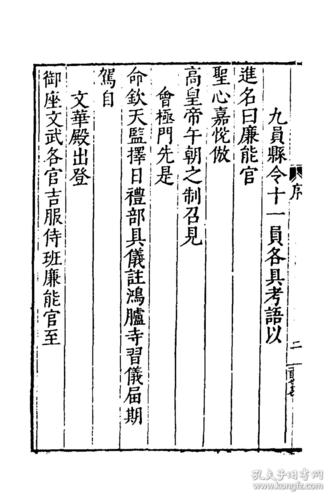 序
二
九員縣令十一員各具考語以
進名曰廉能官
聖心嘉悅倣
高皇帝午朝之制召見
會極門先是
命欽天監擇日禮部具儀註鴻臚寺習儀屆期
駕自
文華殿出登
御座文武各官吉服侍班廉能官至
孔夫子旧书网
www.kongfz.com